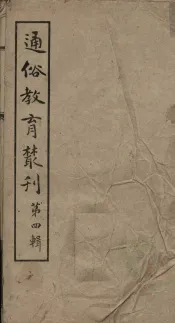 通俗教育叢刊第四輯